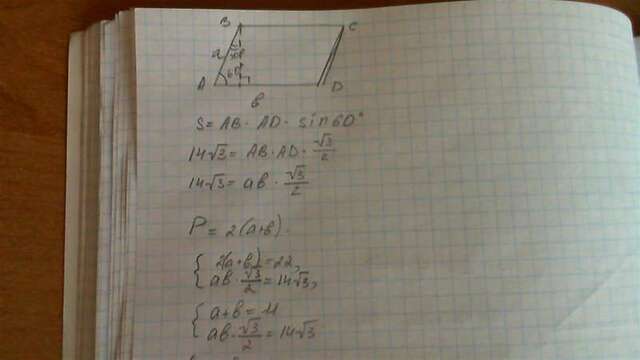 B C
a 30°
A 60° D
b
S = AB · AD · sin60°
14√3 = AB · AD · √3/2
14√3 = ab · √3/2
P = 2(a+b).
{ 2(a+b) = 22,
ab · √3/2 = 14√3,
{ a+b = 11
ab · √3/2 = 14√3